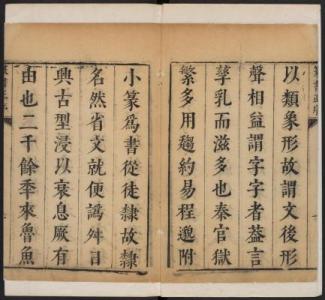 以類象形故謂文後形
聲相益謂字字者葢言
孳乳而滋多也秦官獄
繁多用趨約易程邈附
小篆爲書從徒隸故隸
名然省文就便譌舛日
興古型浸以衰息厥有
由也二千餘季來魯魚